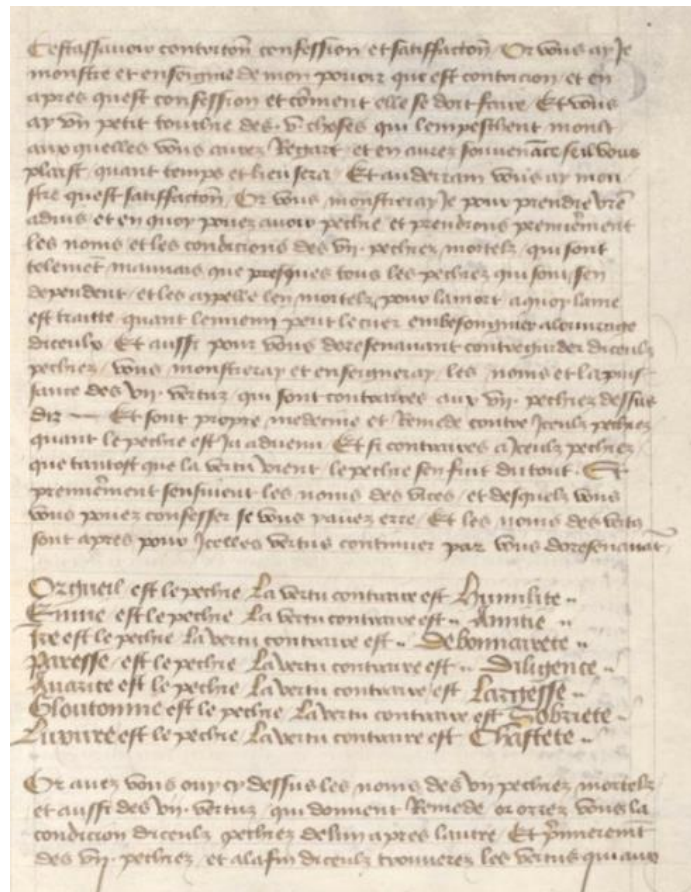 Cest assavoir contriton confession et satiffacton Or vous ay Je
monstre et enseignie de mon povoir que est contricion et en
apres quest confession et coment elle se doit faire Et vous
ay un petit touchie des v choses qui lempeschent moult
aux quelles vous aurez Regart et en aurez souvenace se il vous
plaist quant temps et lieu sera Et au derrain vous ay mon
stre quest satiffacton Or vous monstreray Je pour prendre vre
advis et en quoy povez avoir pechie et prendrons premierement
les noms et les condicions des vii pechiez mortelz qui sont
telemet mauvais que presques tous les pechiez qui sont sen
dependent et les appelle len mortelz pour la mort a quoy lame
est traitte quant lennemi peut le cuer embesongnier a louvrage
diceulx Et aussi pour vous doresenavant contregarder diceulz
pechiez vous monstreray et enseigneray les noms et la puis
sance des vii vertuz qui sont contraires aux vii pechiez dessus
diz Et sont propre medecine et Remede contre Iceulz pechiez
quant le pechie est Ja advenu Et si contraires a Iceulz pechiez
que tantost que la vertu vient le pechie sen fuit du tout Et
premierement sensuient les noms des vices et desquelz vous
vous povez confesser se vous y avez erre Et les noms des vertus
sont apres pour Icelles vertus continuer par vous doresenavat
Orgueil est le pechie La vertu contraire est Humilite
Envie est le pechie La vertu contraire est Amitie
Ire est le pechie La vertu contraire est Debonnairete
Paresse est le pechie La vertu contraire est Diligence
Avarice est le pechie La vertu contraire est Largesse
Gloutonnie est le pechie La vertu contraire est Sobriete
Luxure est le pechie La vertu contraire est Chastete
Or avez vous ouy cy dessus les noms des vii pechiez mortelz
et aussi des vii vertuz qui donnent Remede or orrez vous la
condicion diceulz pechiez de lun apres lautre Et premieremet
des vii pechiez et a la fin diceulz trouverez les vertus qui aux